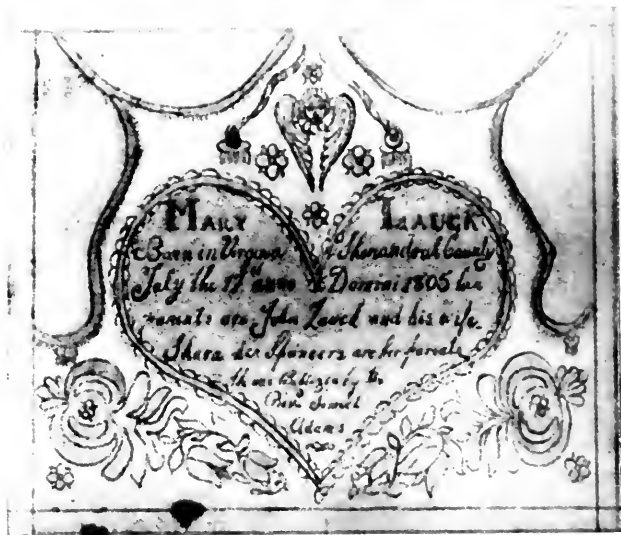 MARY LAUCK
Born in Virginia Shenandoah County
July the 17th anno Domini 1805 her
parents are John Lauck and his wife
her Sponcers are her parents
Baptized by the
Revd Samuel
Adams